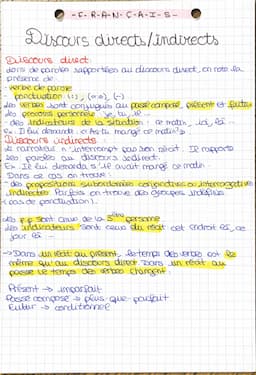 - F - R - A - N - Ç - A - I - S -
Discours directs/indirects
Discours direct:
dans des paroles rapportées au discours direct, on note la
présence de:
- verbe de parole
- ponctuation (:), («»), (-)
Les verbes sont conjugués au passé composé, présent et futur
Les pronoms personnels je, tu, il...
- des indicateurs de la situation: ce matin, ici, hier...
Ex: Il lui demande: « As-tu mangé ce matin? »
Discours indirects:
Le narrateur n'interrompt pas son récit. Il rapporte
les paroles au discours indirect.
Ex: Il lui demanda s'il avait mangé ce matin.
Dans ce cas on trouve:
- des propositions subordonnées conjonctives ou interrogatives
indirectes. Parfois on trouve des groupes infinitifs
(pas de ponctuation).
Les P.P sont ceux de la 3ème personne
Les indicateurs sont ceux du récit: cet endroit là, ce
jour là...
→ Dans un récit au présent, le temps des verbes est le
même qu'au discours direct. Dans un récit au
passé le temps des verbes changent.
Présent → imparfait
Passé composé → plus-que-parfait
Futur → conditionnel